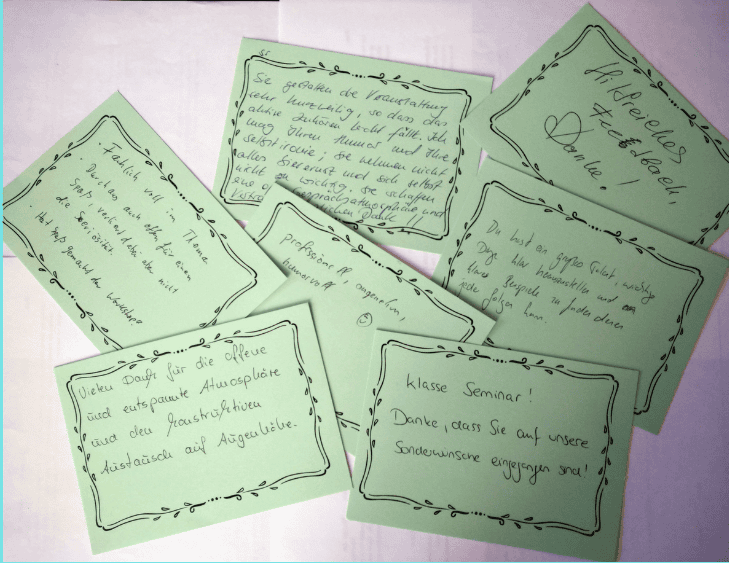 Sie gestalten die Veranstaltung
sehr kurzweilig, so dass das
aktive Zuhören leicht fällt. Ich
mag Ihren Humor und Ihre
Selbstironie; Sie nehmen nicht
alles bierernst und sich selbst
nicht zu wichtig. Sie schaffen
eine
Gesprächsatmosphäre und
Dank
Hilfreiches
Feedback,
Danke!
. Fachlich voll im Thema
. Durchaus auch offen für einen
Spaß, verliert dabei aber nicht
die Seriosität
. Hat Spaß gemacht der Workshop
professionell, angenehm,
humorvoll
Du hast ein großes Talent, wichtige
Dinge klar herauszustellen und
Beispiele zu finden denen
jeder folgen kann.
Vielen Dank für die offene
und entspannte Atmosphäre
und den konstruktiven
Austausch auf Augenhöhe.
Klasse Seminar!
Danke, dass Sie auf unsere
Sonderwünsche eingegangen sind!